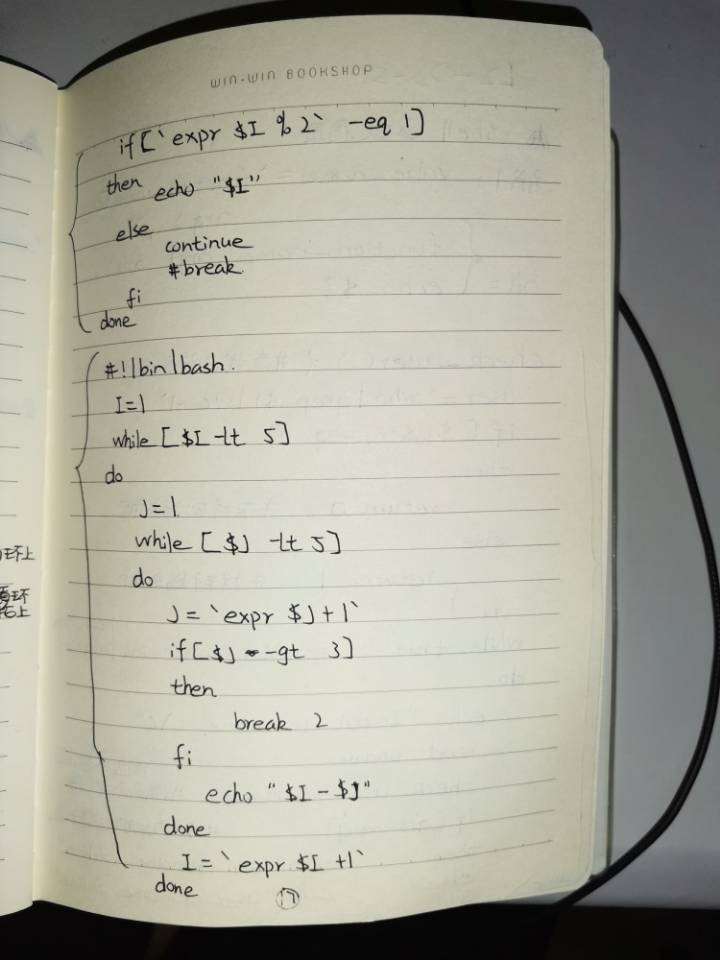 WIN-WIN BOOKSHOP
if [`expr $I % 2` -eq 1]
then echo "$I"
else
continue
#break
fi
done
#!/bin/bash.
I=1
while [$I -lt 5]
do
J=1
while [$J -lt 5]
do
J=`expr $J+1`
if [$J -gt 3]
then
break 2
fi
echo "$I-$J"
done
I=`expr $I +1`
done
17
环上
环
右上